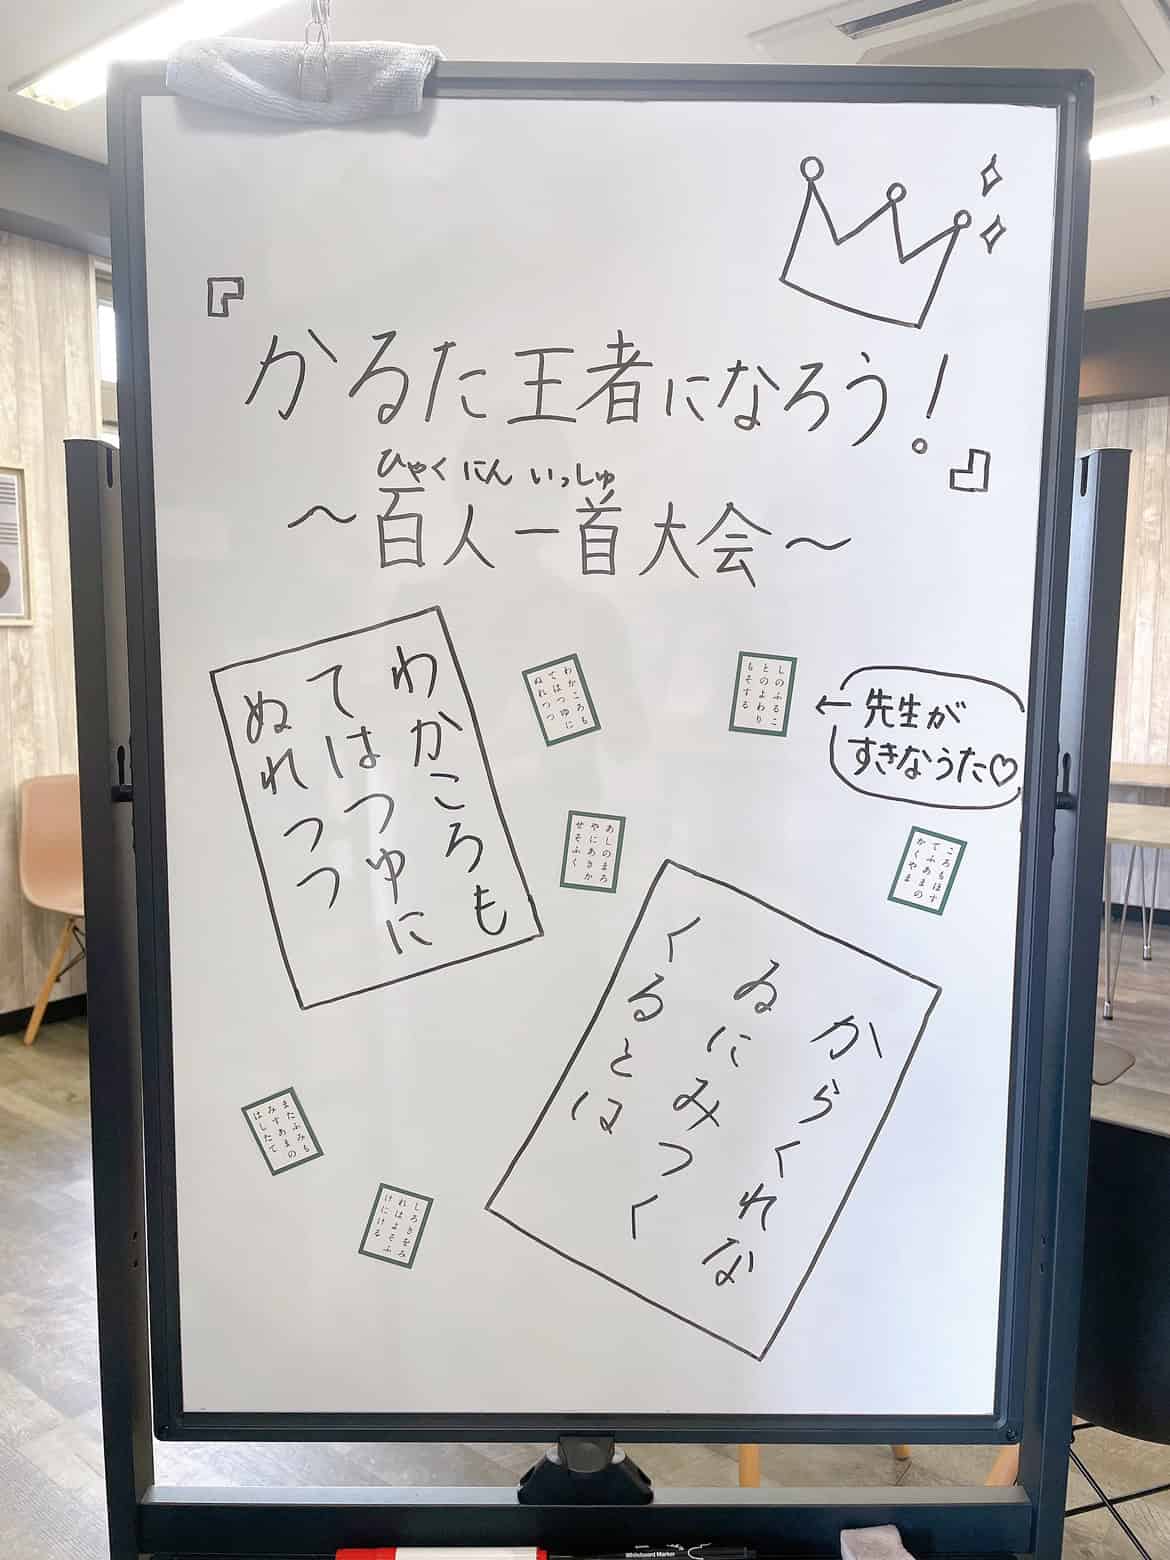 『かるた王者になろう!』
ひゃくにんいっしゅ
〜百人一首大会〜
わかころも
てはつゆに
ぬれつつ
わかころも
てはつゆに
ぬれつつ
しのふるこ
とのよわり
もそする
←先生が
すきなうた♡
あしのまろ
やにあきか
せそふく
ころもほす
てふあまの
かくやま
からくれな
ゐにみつく
くるとは
またふみも
みすあまの
はしたて
しろきをみ
れはよそふ
けにける
Whiteboard Marker